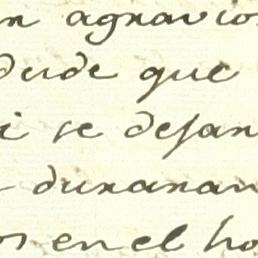 n agravios
dude que
i se dejan
duraran
os en el ho